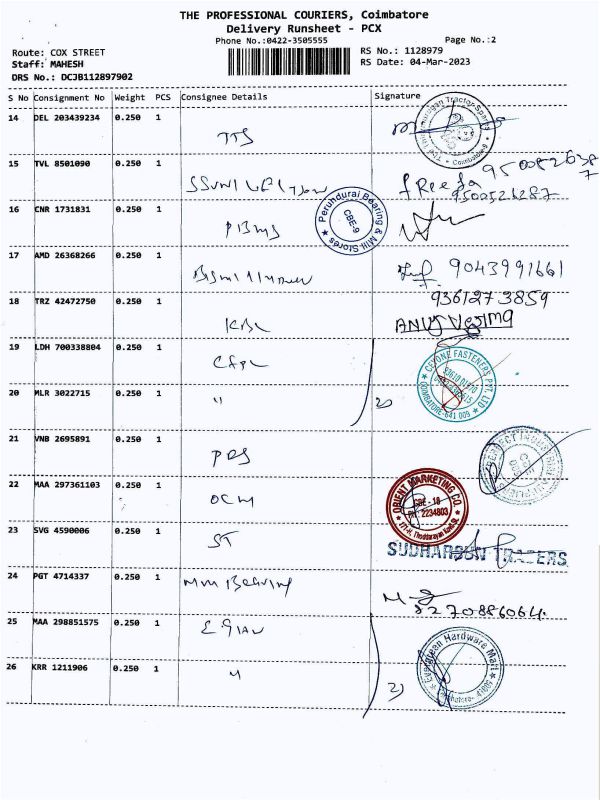 THE PROFESSIONAL COURIERS, Coimbatore
Delivery Runsheet - PCX
Phone No.:0422-3505555 Page No.:2
Route: COX STREET RS No.: 1128979
Staff: MAHESH RS Date: 04-Mar-2023
DRS No.: DCJB112897902
S No Consignment No Weight PCS Consignee Details Signature
14 DEL 203439234 0.250 1 TTS
15 TVL 8501090 0.250 1
9500526287
16 CNR 1731831 0.250 1 PBMS
Perundurai Bearing & Mill Stores CBE-9
17 AMD 26368266 0.250 1 9043991661
18 TRZ 42472750 0.250 1 KBL 9361273859
19 LDH 700338804 0.250 1
CEYONE FASTENERS PVT. LTD COIMBATORE-641 009
20 MLR 3022715 0.250 1 " 2)
21 VNB 2695891 0.250 1 PRS
22 MAA 297361103 0.250 1 OCM
ORIENT MARKETING CO. CBE - 18 PH: 2234803
23 SVG 4590006 0.250 1 ST SUDHARSUN TRADERS
24 PGT 4714337 0.250 1 MM Bearing
8270886064
25 MAA 298851575 0.250 1
Evergreen Hardware Mart
26 KRR 1211906 0.250 1 " 2)